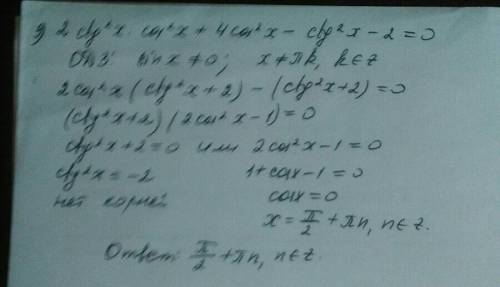 з) 2ctg²x · cos²x + 4cos²x − ctg²x − 2 = 0
ОДЗ: sin x ≠ 0; x ≠ πk, k∈z
2cos²x (ctg²x+2) − (ctg²x+2) = 0
(ctg²x+2) (2cos²x−1) = 0
ctg²x+2=0 или 2cos²x−1=0
ctg²x = −2 1+cosx−1=0
нет корней cosx=0
x = π/2 + πn, n∈z.
Ответ: π/2 + πn, n∈z.